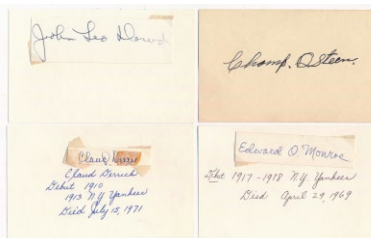 John Leo Dowd
Champ. Osteen.
Claud Derrick
Claud Derrick
Debut 1910
1913 N.Y Yankees
Died July 15, 1971
Edward O. Monroe
Debut 1917-1918 N.Y Yankees
Died April 29, 1969